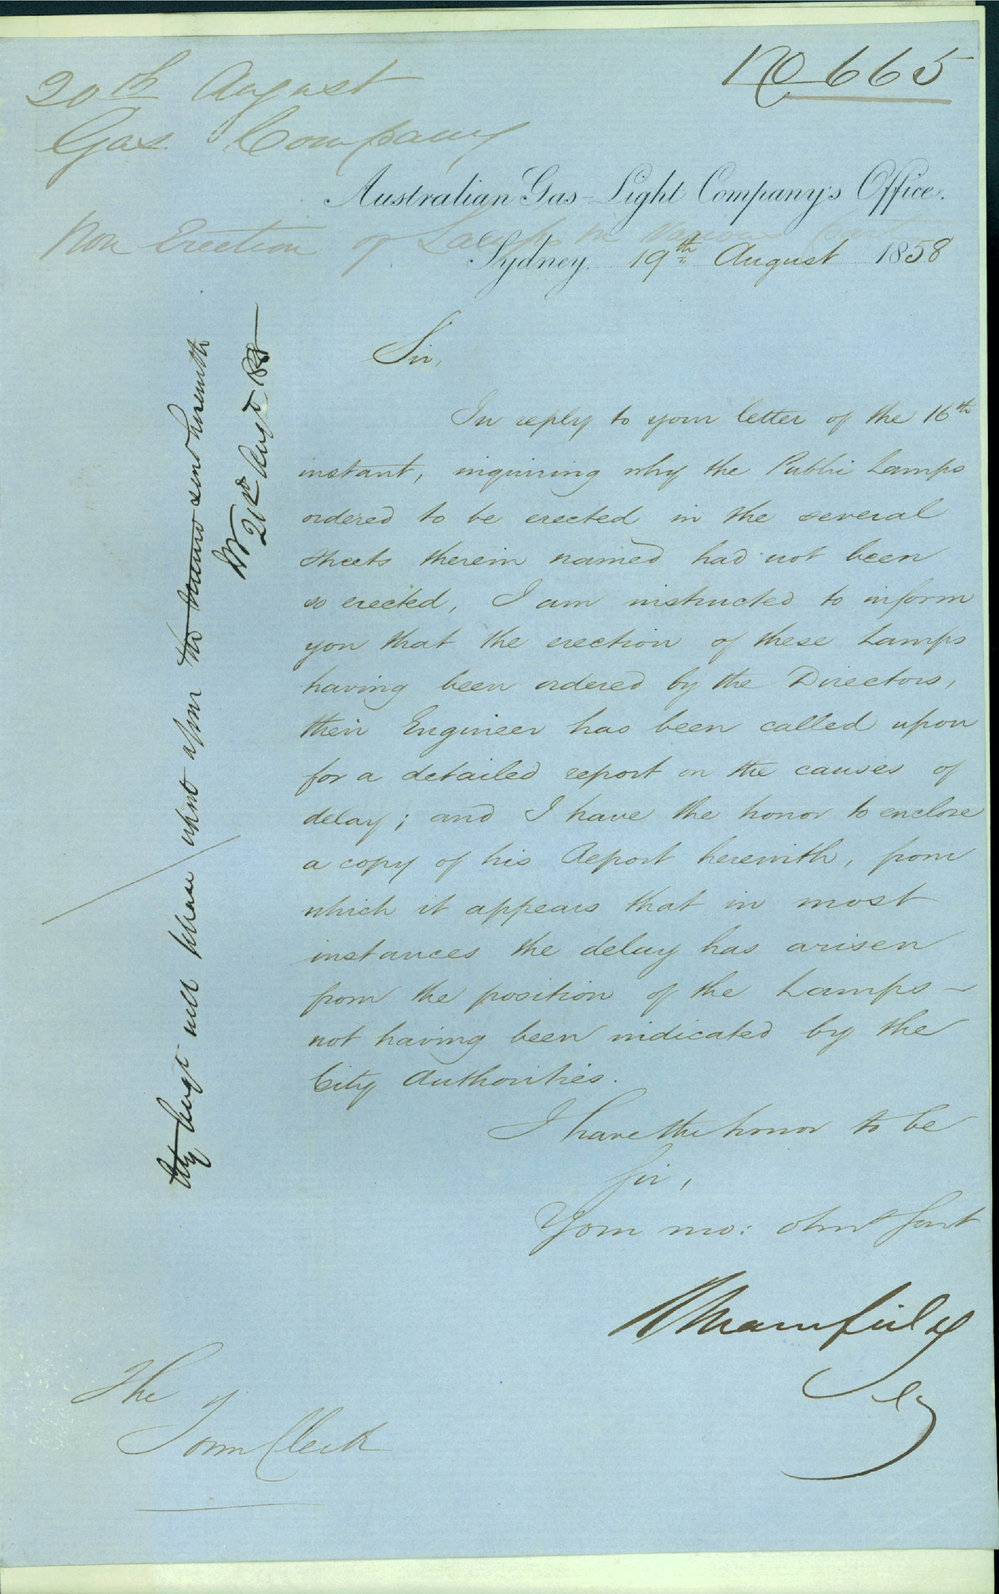 No 665
20th August
Gas Company
Australian Gas-Light Company's Office.
Non Erection of Lamps in various parts
Sydney. 19th August 1858
Sir,
In reply to your letter of the 16th
instant, inquiring why the Public Lamps
ordered to be erected in the several
streets therein named had not been
so erected, I am instructed to inform
you that the erection of these Lamps
having been ordered by the Directors,
their Engineer has been called upon
for a detailed report on the causes of
delay; and I have the honor to enclose
a copy of his Report herewith, from
which it appears that in most
instances the delay has arisen
from the position of the Lamps -
not having been indicated by the
City Authorities.
I have the honor to be
Sir,
Your mo: obnt Sart
Mansfield
Sey
The
Town Clerk
will please report upon the return send herewith
21st Augt 1858